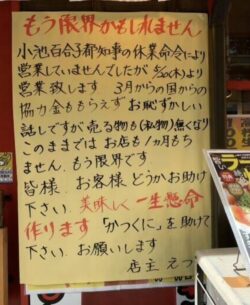 もう限界かもしれません
小池百合子都知事の休業命令により
営業していませんでしたが 5/20(木)より
営業致します 3月からの国からの
協力金ももらえず お恥ずかしい
話しですが 売る物も(私物)無くなり
このままでは お店も1ヵ月もち
ません。もう限界です
皆様、お客様、どうかお助け
下さい。美味しく一生懸命
作ります 「かつくに」を助けて
下さい。お願いします
店主 えつ